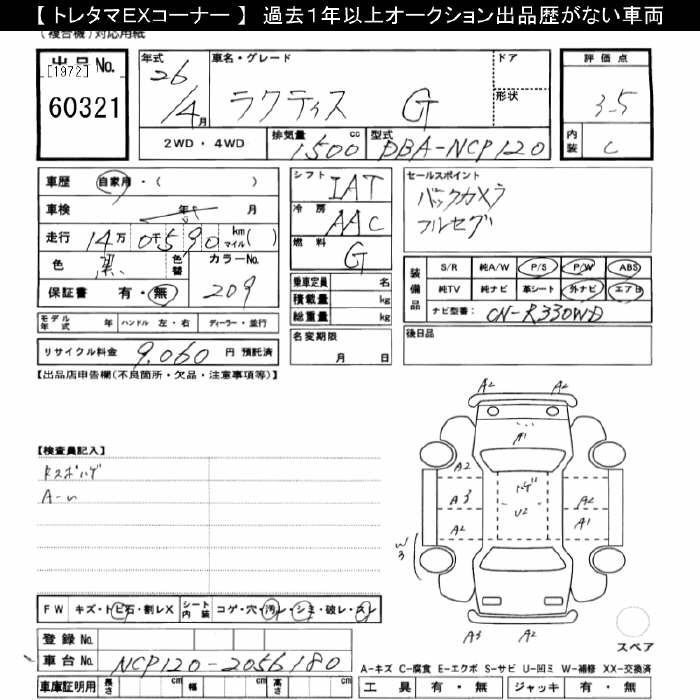 【 トレタマEXコーナー 】 過去1年以上オークション出品歴がない車両
(複合機)対応用紙
出品No.
[1972]
60321
年式 26/4月
車名・グレード ラクティス G
ドア
形状
評価点 3.5
内装 C
2WD・4WD
排気量 1500 cc
型式 DBA-NCP120
車歴 自家用・( )
車検 年 月
走行 14万0千590 km マイル( )
色 黒
色替
カラーNo. 209
保証書 有・無
シフト IAT
冷房 AAC
燃料 G
乗車定員 名
積載量 kg
総重量 kg
セールスポイント
バックカメラ
フルセグ
装備品
S/R 純A/W P/S P/W ABS
純TV 純ナビ 革シート 外ナビ エアB
ナビ型番: CN-R330WD
モデル年式 年 ハンドル 左・右 ディーラー・並行
リサイクル料金 9,060 円 預託済
名変期限
月 日
後日品
【出品店申告欄(不良箇所・欠品・注意事項等)】
【検査員記入】
A2 A2
A1
A2
A3
A2
U2
A2
A1
W3
A3 A2
スペア
FW キズ・トビ石・割レX
シート内装 コゲ・穴・汚レ・シミ・破レ・スレ
登録No.
車台No. NCP120-2056180
車庫証明用 長さ cm 幅 cm 高さ cm
A-キズ C-腐食 E-エクボ S-サビ U-凹ミ W-補修 XX-交換済
工具 有・無 ジャッキ 有・無